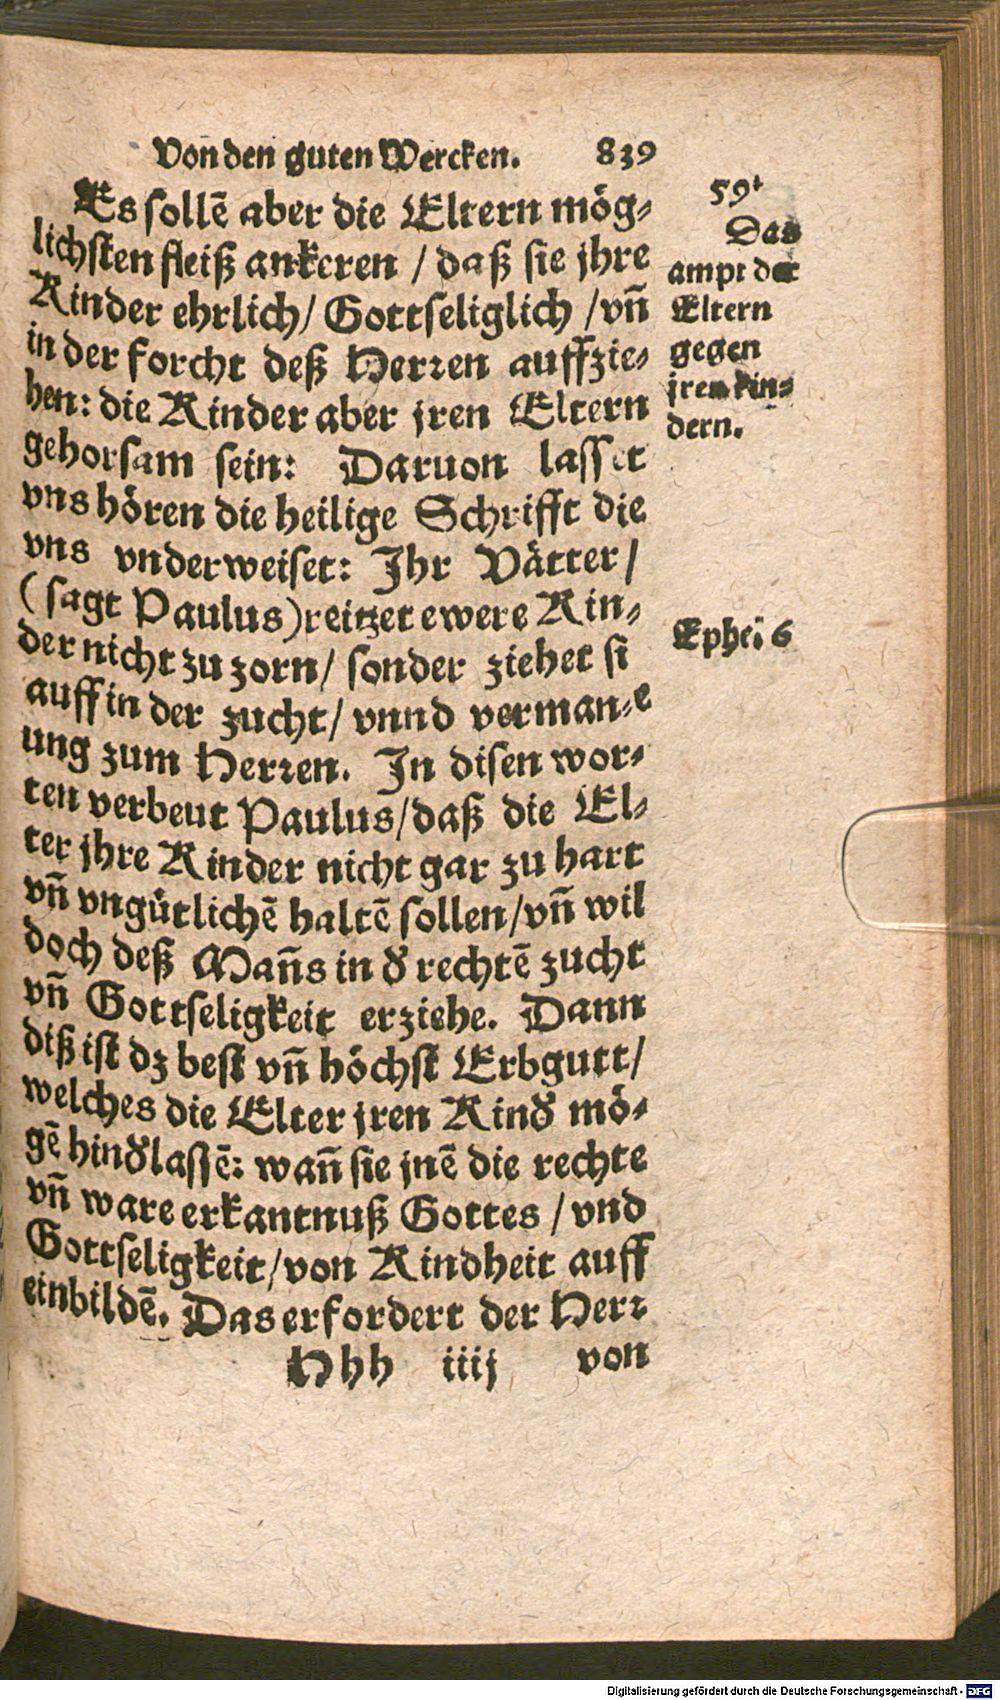 Von den guten Wercken. 839
Es sollẽ aber die Eltern mög⸗
lichsten fleiß ankeren / daß sie jhre
Kinder ehrlich / Gottseliglich / vñ
in der forcht deß Herren auffzie⸗
hen: die Kinder aber jren Eltern
gehorsam sein: Daruon lasset
vns hören die heilige Schrifft die
vns vnderweiset: Ihr Vätter /
(sagt Paulus) reitzet ewere Kin⸗
der nicht zu zorn / sonder ziehet si
auff in der zucht / vnnd verman⸗e
ung zum Herren. In disen wor⸗
ten verbeut Paulus / daß die El⸗
ter jhre Kinder nicht gar zu hart
vñ vngütlichẽ haltẽ sollen / vñ wil
doch deß Mañs in d' rechtẽ zucht
vñ Gottseligkeit erziehe. Dann
diß ist dz best vñ höchst Erbgutt /
welches die Elter jren Kind' mö⸗
gẽ hind'lassẽ: wañ sie jnẽ die rechte
vñ ware erkantnuß Gottes / vnd
Gottseligkeit / von Kindheit auff
einbildẽ. Das erfordert der Herr
Hhh iiij von
59.
Das
ampt der
Eltern
gegen
jren kin⸗
dern.
Ephei 6
Digitalisierung gefördert durch die Deutsche Forschungsgemeinschaft - DFG